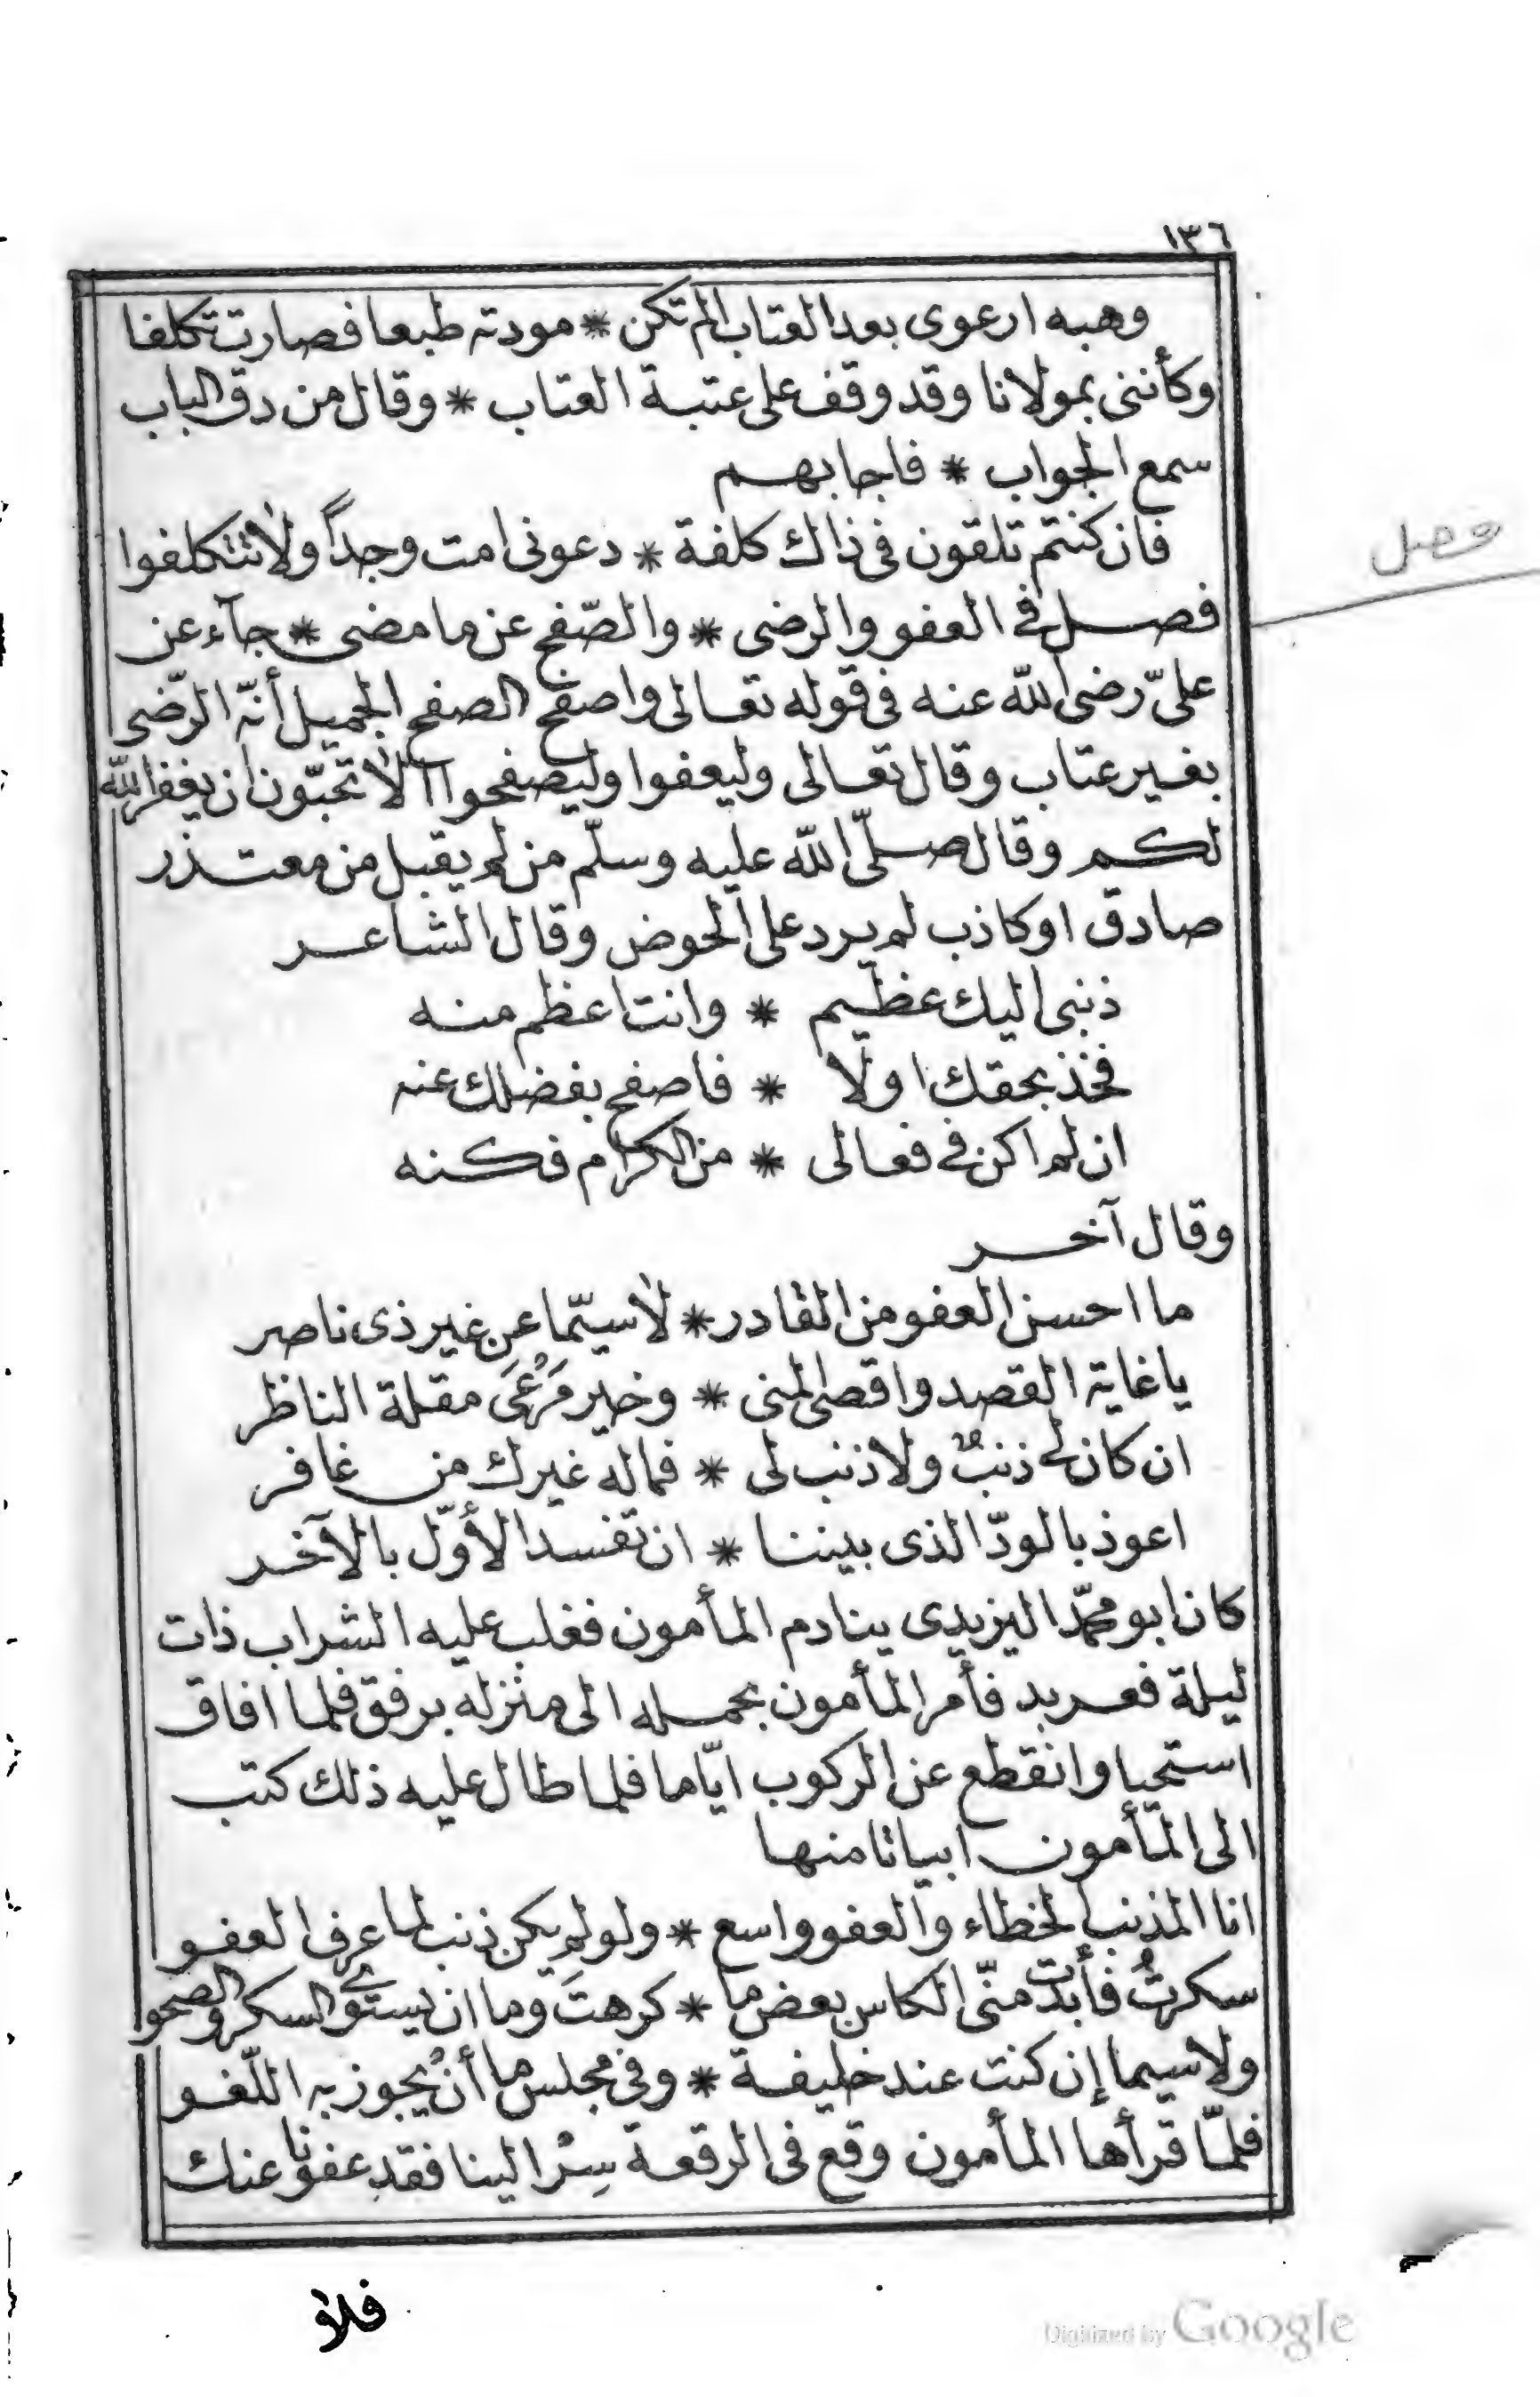 ١٣٦
وهبه ارعوى بعد العتاب الم تكن * مودته طبعا فصارت تكلفا
وكأننى بمولانا وقد وقف على عتبة العتاب * وقال من دق الباب
سمع الجواب * فاجابهم
فان كنتم تلقون فى ذاك كلفة * دعونى امت وجداً ولا تتكلفوا
فصل
فصل فى العفو والرضى * والصّفح عن ما مضى * جآء عن
علىّ رضى اللّه عنه فى قوله تعالى واصفح الصفح الجميل أنّه الرّضى
بغير عتاب وقال تعالى وليعفوا وليصفحوا الا تحبّون ان يغفر اللّه
لكم وقال صلّى اللّه عليه وسلّم من لم يقبل من معتذر
صادق او كاذب لم يرد على الحوض وقال الشاعر
ذنبى اليك عظيم * وانت اعظم منه
فخذ بحقك اولا * فاصفح بفضلك عنه
ان لم اكن فى فعالى * من الكرام فكنه
وقال آخر
ما احسن العفو من القادر * لا سيّما عن غير ذى ناصر
يا غاية القصد واقصى المنى * وخير مَرْعَى مقلة الناظر
ان كان لى ذنبٌ ولا ذنب لى * فما له غيرك من غافر
اعوذ بالودّ الذى بيننا * ان تفسد الأوّل بالآخر
كان ابو محمّد اليزيدى ينادم المأمون فغلب عليه الشراب ذات
ليلة فعربد فأمر المأمون بحمله الى منزله برفق فلما افاق
استحيا وانقطع عن الركوب ايّاما فلما طال عليه ذلك كتب
الى المأمون ابياتا منها
انا المذنب الخطاء والعفو واسع * ولو لم يكن ذنب لما عرف العفو
سكرتُ فأبدت منّى الكاس بعض ما * كرهتَ وما ان يستوى السكر والصحو
ولا سيما إن كنت عند خليفة * وفى مجلس ما أنْ يجوز به اللّغو
فلمّا قرأها المأمون وقع فى الرقعة سِرْ الينا فقد عفونا عنك
فلاو
Digitized by Google